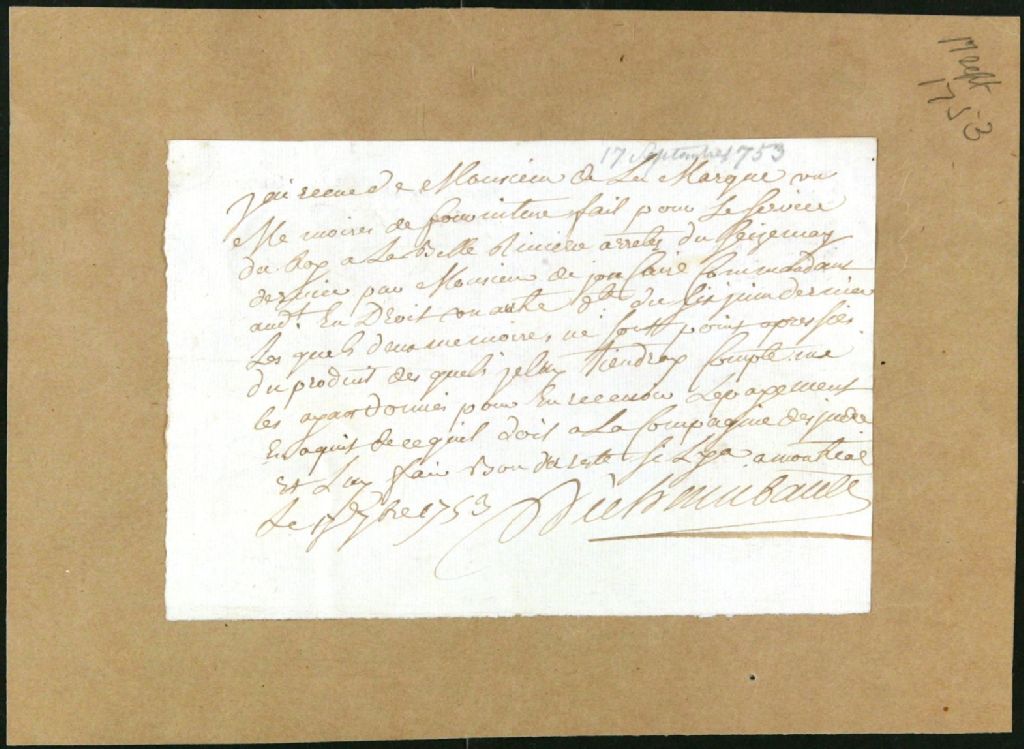 17 Sept
1753
17 Septembre 1753
J'ai receu de Monsieur de La Marque un
Me moires de fourniture fait pour Le Service
du Roy a La Belle Riviere arretés du Seizemay
dernier par Monsieur de jon Caire Commandant
audt. En Droit un autre dt. du six juin dernier
Les quels deux memoires ne sont point apossiés
du produit des quels je luy tiendray Compte me
les ayant donnés pour En recevoir Lepayement
En aquit de ce quil doit a La Compagnie des jnde
Et Luy fair Bon du reste si Lya a montreal
Le 17 7bre 1753